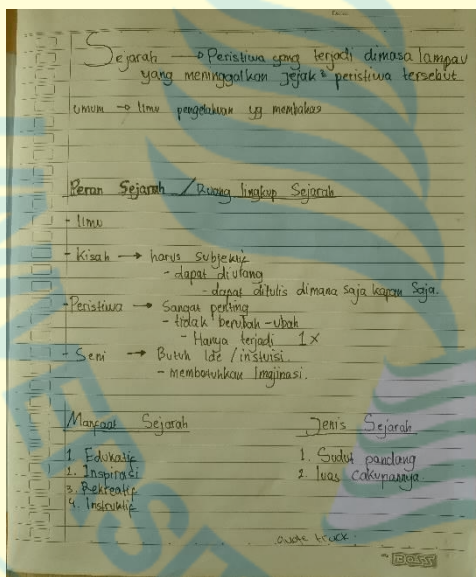 Sejarah → Peristiwa yang terjadi dimasa lampau
yang meninggalkan jejak² peristiwa tersebut
umum → Ilmu pengetahuan yg membahas
Peran Sejarah / Ruang lingkup Sejarah
- Ilmu
- Kisah → harus subjektif
- dapat diulang
- dapat ditulis dimana saja kapan saja.
- Peristiwa → Sangat penting
- tidak berubah-ubah
- Hanya terjadi 1x
- Seni → Butuh Ide / instuisi.
- membutuhkan Imajinasi.
Manfaat Sejarah
1. Edukatif
2. Inspirasi
3. Rekreatif
4. Instruktif
Jenis Sejarah
1. Sudut pandang
2. luas cakupannya